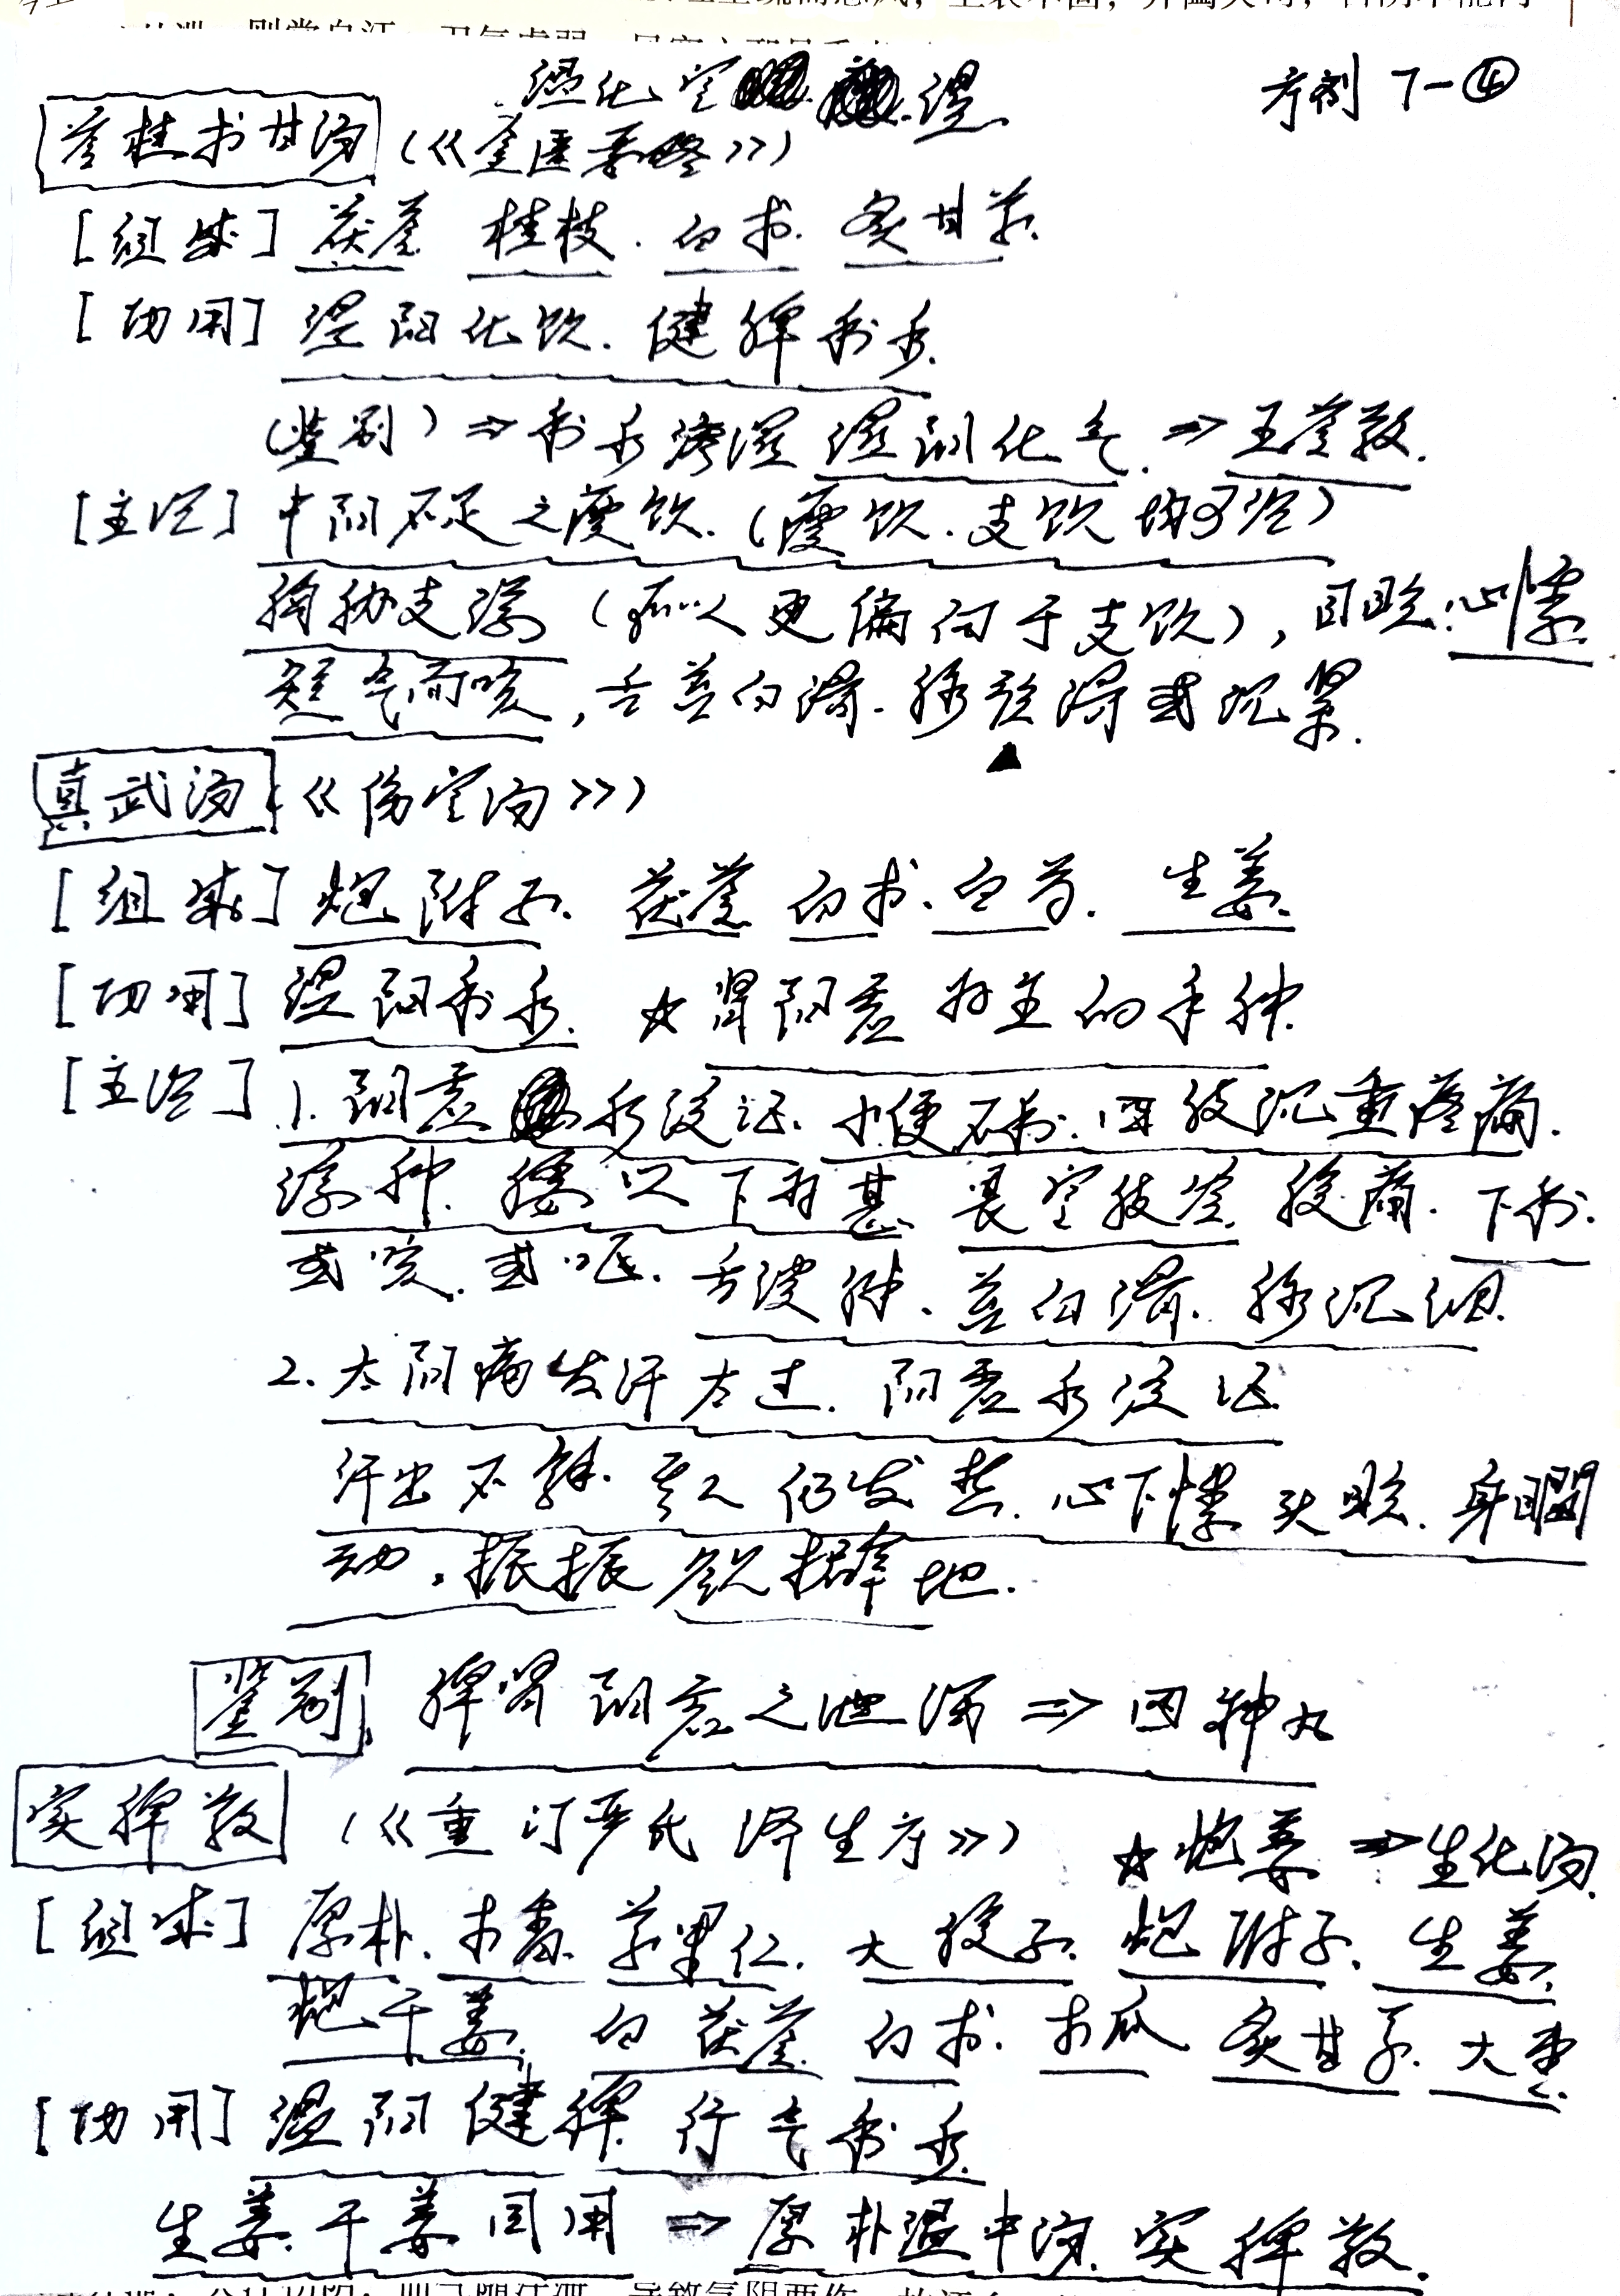 温化寒湿
方剂 7-④
苓桂术甘汤 (《金匮要略》)
[组成] 茯苓 桂枝. 白术. 炙甘草.
[功用] 温阳化饮. 健脾利水.
(鉴别) ⇒ 利水渗湿 温阳化气. ⇒ 五苓散.
[主治] 中阳不足之痰饮. (痰饮. 支饮均可治)
胸胁支满 (所以更偏向于支饮), 目眩. 心悸.
短气而咳, 舌苔白滑. 脉弦滑或沉紧.
▲
真武汤 (《伤寒论》)
[组成] 炮附子. 茯苓 白术. 白芍. 生姜.
[功用] 温阳利水. ☆肾阳虚为主的水肿.
[主治] 1. 阳虚水泛证. 小便不利. 四肢沉重疼痛.
浮肿. 腰以下为甚 畏寒肢冷. 腹痛. 下利.
或咳. 或呕. 舌淡胖. 苔白滑. 脉沉细.
2. 太阳病发汗太过. 阳虚水泛证.
汗出不解. 其人仍发热. 心下悸 头眩. 身瞤
动. 振振欲擗地.
鉴别. 脾肾阳虚之泄泻 ⇒ 四神丸
实脾散 (《重订严氏济生方》) ☆炮姜 ⇒ 生化汤.
[组成] 厚朴. 木香. 草果仁. 大腹子. 炮附子. 生姜.
炮干姜. 白茯苓. 白术. 木瓜 炙甘草. 大枣.
[功用] 温阳健脾. 行气利水.
生姜. 干姜同用 ⇒ 厚朴温中汤. 实脾散.